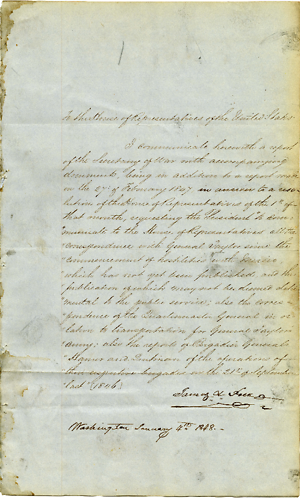 To the House of Representatives of the United States.
I communicate herewith a report
of the Secretary of War with accompanying
documents, being in addition to a report made
on the 27th of February 1847, in answer to a reso-
lution of the House of Representatives of the 1st of
that month, requesting the President "to com-
municate to the House of Representatives all the
correspondence with General Taylor since the
commencement of hostilities with Mexico
which has not yet been published, and the
publication of which may not be deemed detri-
mental to the public service; also the corres-
pondence of the Quartermaster General in re-
lation to transportation for General Taylor's
Army; also the reports of Brigadier Generals
Hamer and Quitman of the operations of
their respective brigades on the 21st of September
last (1846)."
James K. Polk
Washington January 4th 1848.